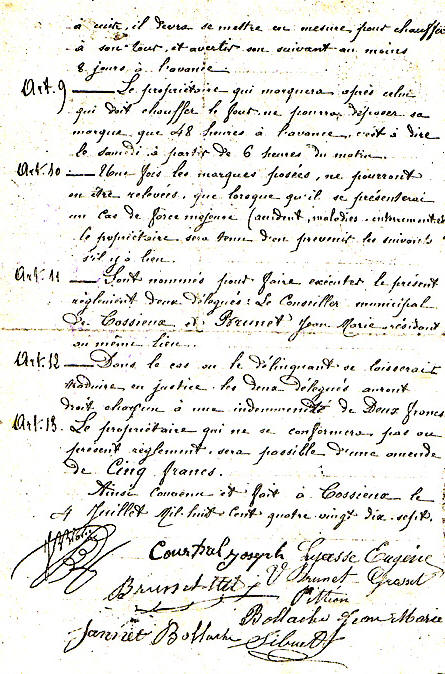 à cuire, il devra se mettre en mesure pour chauffer
à son tour, et avertir son suivant au moins
8 jours à l'avance.
Art. 9 — Le propriétaire qui marquera après celui
qui doit chauffer le four ne pourra déposer sa
marque que 48 heures à l'avance, c'est à dire
le samedi à partir de 6 heures du matin.
Art. 10 — Une fois les marques posées, ne pourront
en être relevées, que lorsque qu'il se présenterai
un cas de force majeure (accident, maladies, enterrements)
le propriétaire sera tenu d'en prevenir les suivants
s'il y a lieu.
Art. 11 — Sont nommés pour faire exécuter le présent
règlement deux délégués: Le Conseiller municipal
de Cossieux et Brunet Jean Marie résidant
au même lieu.
Art. 12 — Dans le cas ou le délinquant se laisserait
traduire en justice les deux délégués auront
droit chacun à une indemnité de Deux francs
Art. 13. Le propriétaire qui ne se conformera pas au
présent règlement sera passible d'une amende
de Cinq francs.
Ainsi convenu et fait à Cossieux le
4 Juillet Mil huit cent quatre vingt dix sept.
Courtial joseph Eugène
Brunet V Brunet
Bollache Jean Marie
Jannet Bollache Sibuet